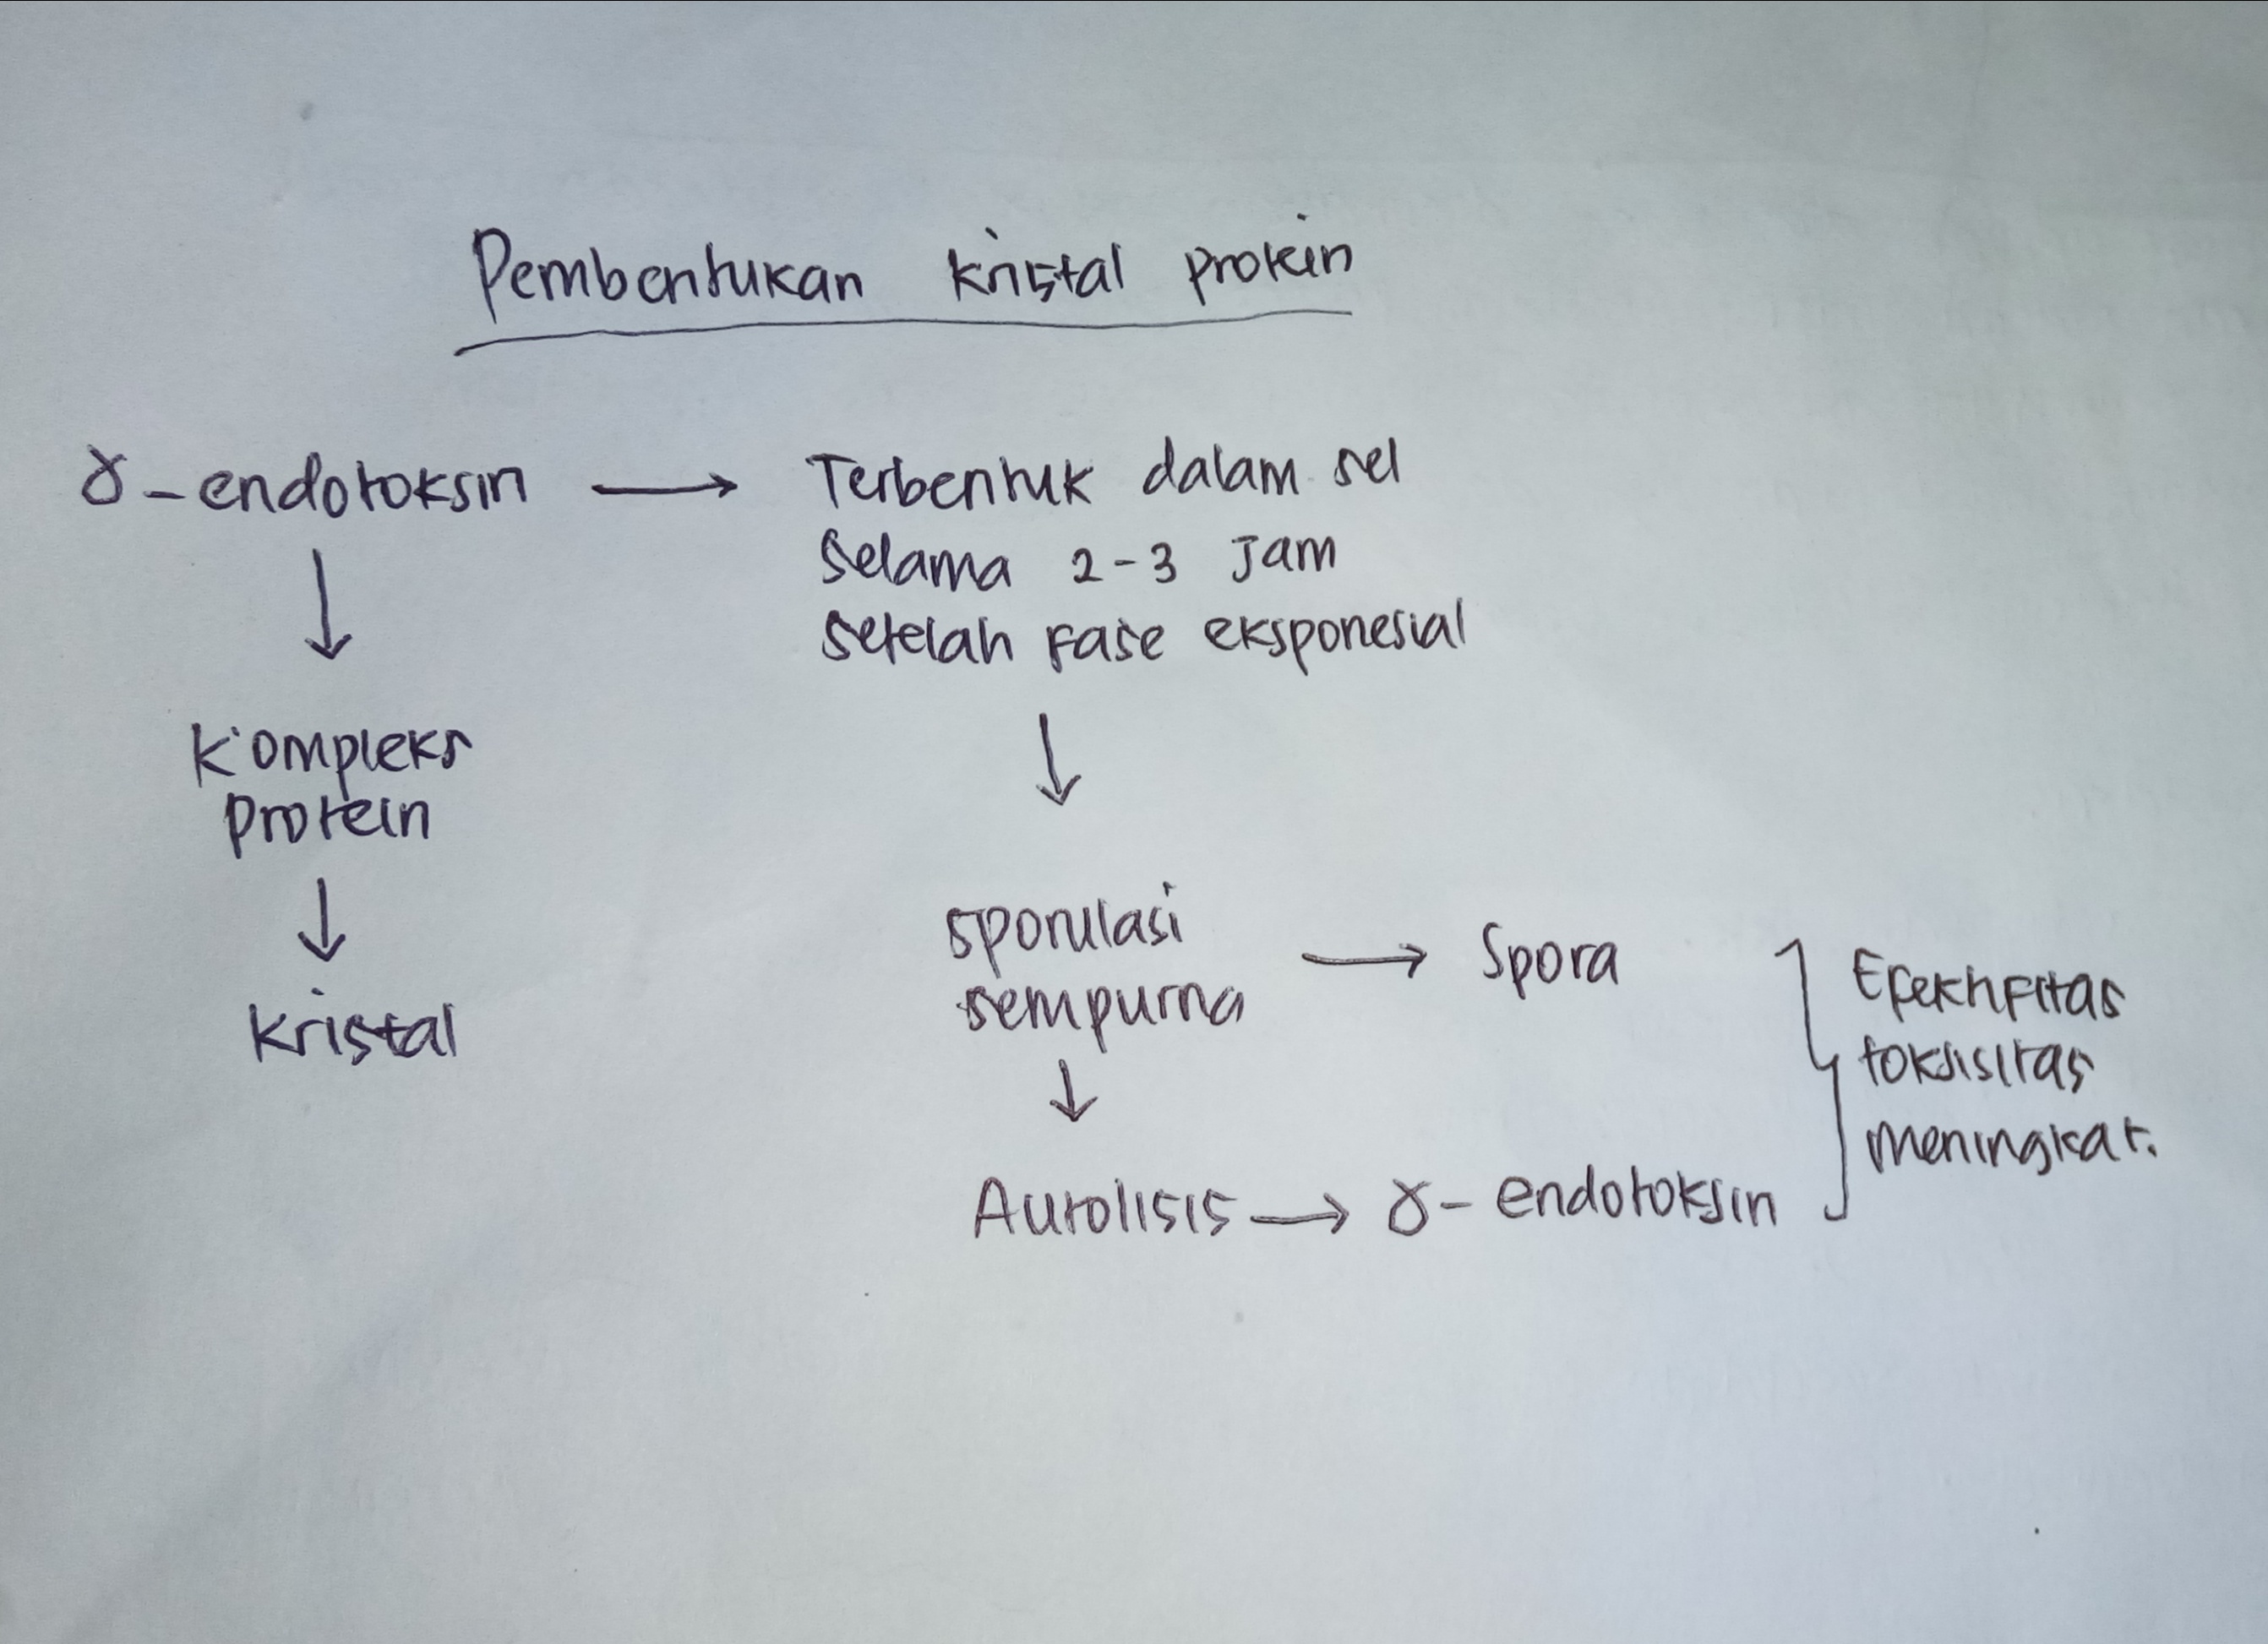 Pembentukan kristal protein
ɣ - endotoksin → Terbentuk dalam sel
selama 2-3 Jam
setelah fase eksponesial
↓
↓
Kompleks
protein
↓
Kristal
sporulasi
sempurna → Spora
↓
Autolisis → ɣ - endotoksin
Efektifitas
toksisitas
meningkat.